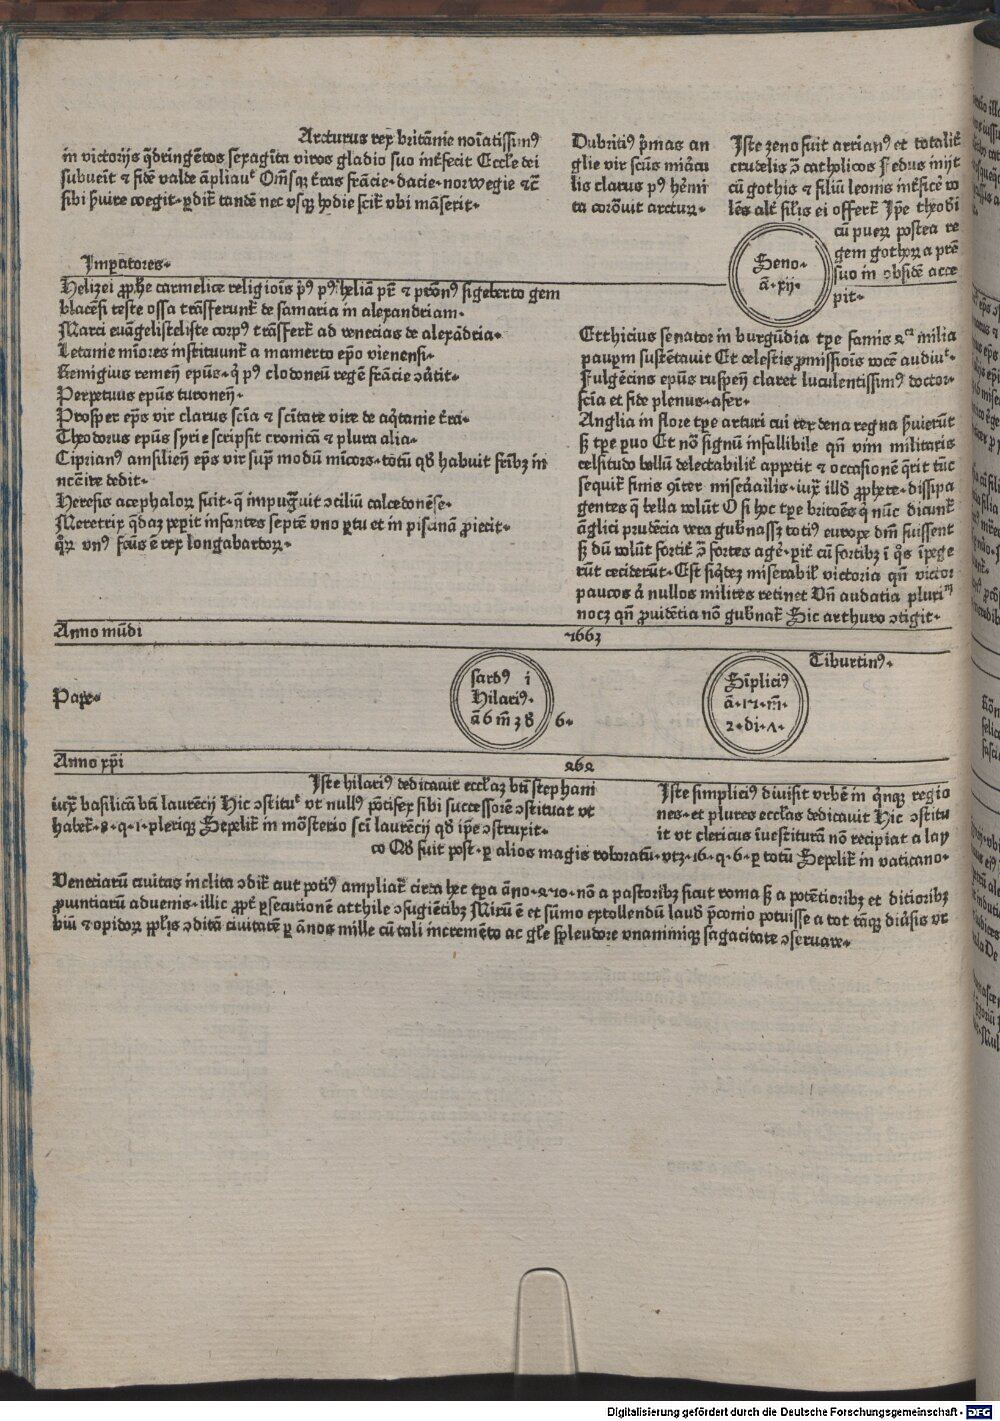 Arcturus rex britānie noīatissimꝰ
in victorijs q̄dringētos sexagīta viros gladio suo intͥfecit Eccl̄e dei
subuenit ⁊ fidē valde āpliauͭ Om̄sqꝫ tͤras frācie·dacie·norwegie ⁊c̄
sibi ẜuire coegit·ꝑditͥ tandē nec vsqꝫ hodie scitͥ vbi māserit·
Dubritiꝰ p̄mas an
glie vir scūs mirācu
lis clarus pꝰ hēmi
ta corōuit arcturꝝ·
Iste zeno fuit arrianꝰ et totalitͥ
crudelis ↄ̄ catholicos Fedus inijt
cū gothis ⁊ filiū leonis intͥficē vo
lēs altͥ silīs ei offertͥ Ip̄e theodi
cū puerꝝ postea re
gem gothoꝝ a pr̄e
suo in obsidē acce
pit·
Seno·
ā·xij·
Imꝑatores·
Helizei ꝓph̄e carmelice religioīs pͥꝰ pꝰ heliā pr̄ē ⁊ pr̄ōnꝰ sigeberto gem
blacēsi teste ossa trāsferuntͥ de samaria in alexandriam·
Marci euāgelisteliste corpꝰ trāsfertͥ ad venecias de alexādria·
Letanie mīores instituuntͥ a mamerto ep̄o vienensi·
Remigius remeñ epūs·qͥ pꝰ clodoneū regē frācie ↄūtit·
Perpetuus epūs turoneñ·
Prosper ep̄s vir clarus scīa ⁊ scītate vite de aq̄tanie tͤra·
Theodorus epūs syrie scripsit cronicā ⁊ plura alia·
Ciprianꝰ amsilieñ ep̄s vir supͣ modū mīcors·totū qd̄ habuit fr̄ibꝫ in
ncēite dedit·
Heresis acephaloꝝ fuit·q̄ impugͣuit ↄciliū calcedonēse·
Meretrix q̄dāꝫ peꝑit infantes septē vno ꝑtu et in piscinā ꝓiecit·
qͦꝝ vnꝰ fcūs ē rex longabardoꝝ·
Etthicius senator in burgūdia tꝑe famis ꝝ milia
pauꝑm sustētauit Et celestis ꝓmissiois vocē audiuͭ·
Fulgēcius epūs ruspeñ claret luculentissimꝰ doctor·
scīa et fide plenus·afer·
Anglia in flore tꝑe arturi cui rex dena regna ẜuierūt
sꝫ tꝑe suo Et nō signū infallibile qn̄ vim militaris
celsitudo bellū delectabilitͥ appetit ⁊ occasionē q̄rit tūc
sequitͥ finis ꝯitͥer miserāilis·iuxͣ illđ ꝓphete·dissipa
gentes q̄ bella volūt O si hoc tꝑe britoēs q̄ nūc dicuntͥ
āglici prudēcia vera gub̄nassꝫ totiꝰ europe dn̄i fuissent
sꝫ dū volūt fortitͥ ↄ̄ fortes agē·ꝑitͥ cū fortibꝫ ī qͦs īpege
rūt ceciderūt·Est siq̄deꝫ miserabil̄ victoria qn̄ victor
paucos ā nullos milites retinet Vn̄ audatia pluriᵐ
nocꝫ qn̄ ꝓuidētia nō gub̄natͥ Sic arthuro ↄtigit·
Anno mūdi
ꞇ663
Pape·
sardꝰ i
Hilariꝰ·
ā 6 m̄ 3 8
6·
Tiburtinꝰ·
Sīpliciꝰ
ā·1ꞇ·m̄·
2·di·ʌ·
Anno xp̄i
ꝝ6ꝝ
Iste hilariꝰ dedicauit eccl̄aꝫ btī stephani
iuxͣ basilicā btī laurēcij Hic ↄstituͭ vt nullꝰ pōtifex sibi successoiē ↄstituat vt
habetͥ·8·q·1·pleriqꝫ Sepelitͥ in mōsterio scī laurēcij qd̄ ip̄e ↄstruxit·
Iste simpliciꝰ diuisit vrbē in q̄nqꝫ regio
nes·et plures eccl̄as dedicauit Hic ↄstitu
it vt clericus īuestiturā nō recipiat a lay
co Qd̄ fuit post·ꝑ alios magis roboratū·vtꝫ·16·q·6·ꝑ totū Sepelitͥ in vaticano·
Veneciarū ciuitas inclita ↄditͥ aut potiꝰ ampliatͥ circa hec tꝑa āno·ꝝꞇ0·nō a pastoribꝫ sicut roma sꝫ a potētioribꝫ et ditioribꝫ
ꝓuintiarū aduenis·illic ꝓptͥ ꝑsecutionē atthile ↄfugiētibꝫ Mirū ē et sūmo extollendū laudū p̄conio potuisse a tot tāqꝫ diūsis vr
biū ⁊ opidoꝝ ppl̄is ↄditā ciuitatē ꝑ ānos mille cū tali incremēto ac gl̄e spl̄endore vnanimiqꝫ sagacitate ↄseruare·
Digitalisierung gefördert durch die Deutsche Forschungsgemeinschaft - DFG